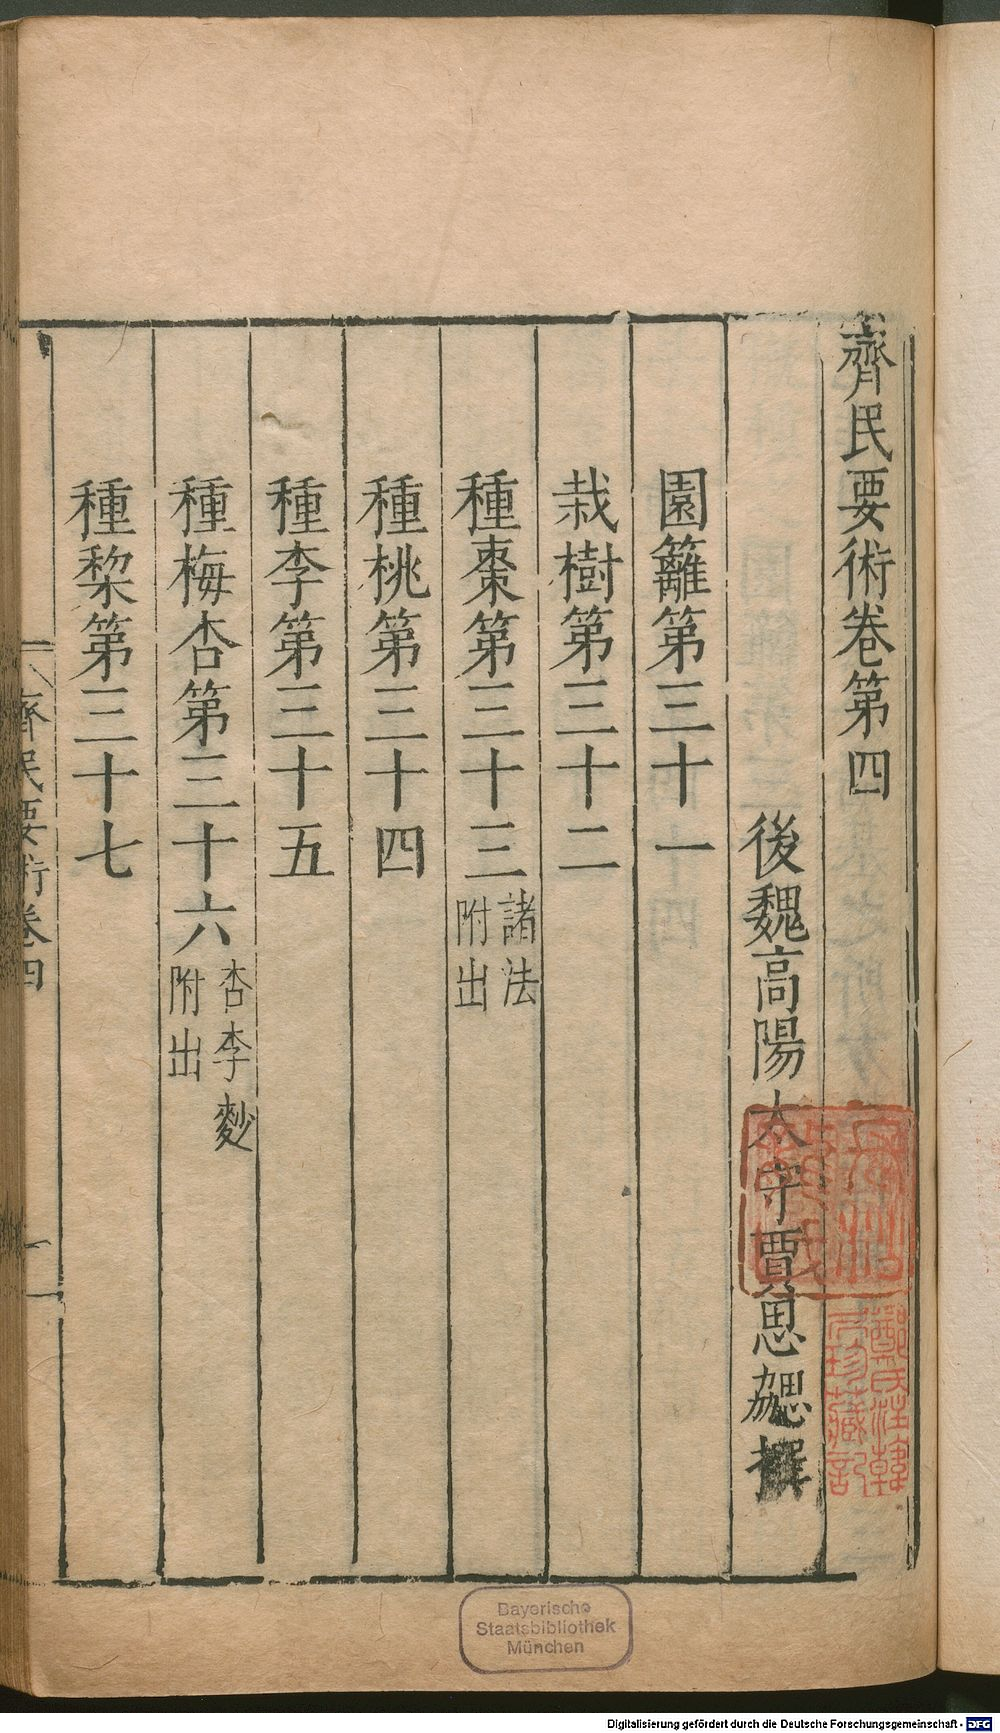 齊民要術卷第四
後魏高陽太守賈思勰撰
園籬第三十一
栽樹第三十二
種棗第三十三 諸法附出
種桃第三十四
種李第三十五
種梅杏第三十六 杏李麨附出
種棃第三十七
齊民要術卷四
鄭氏注韓
居珍藏記
Bayerische
Staatsbibliothek
München
Digitalisierung gefördert durch die Deutsche Forschungsgemeinschaft - DFG